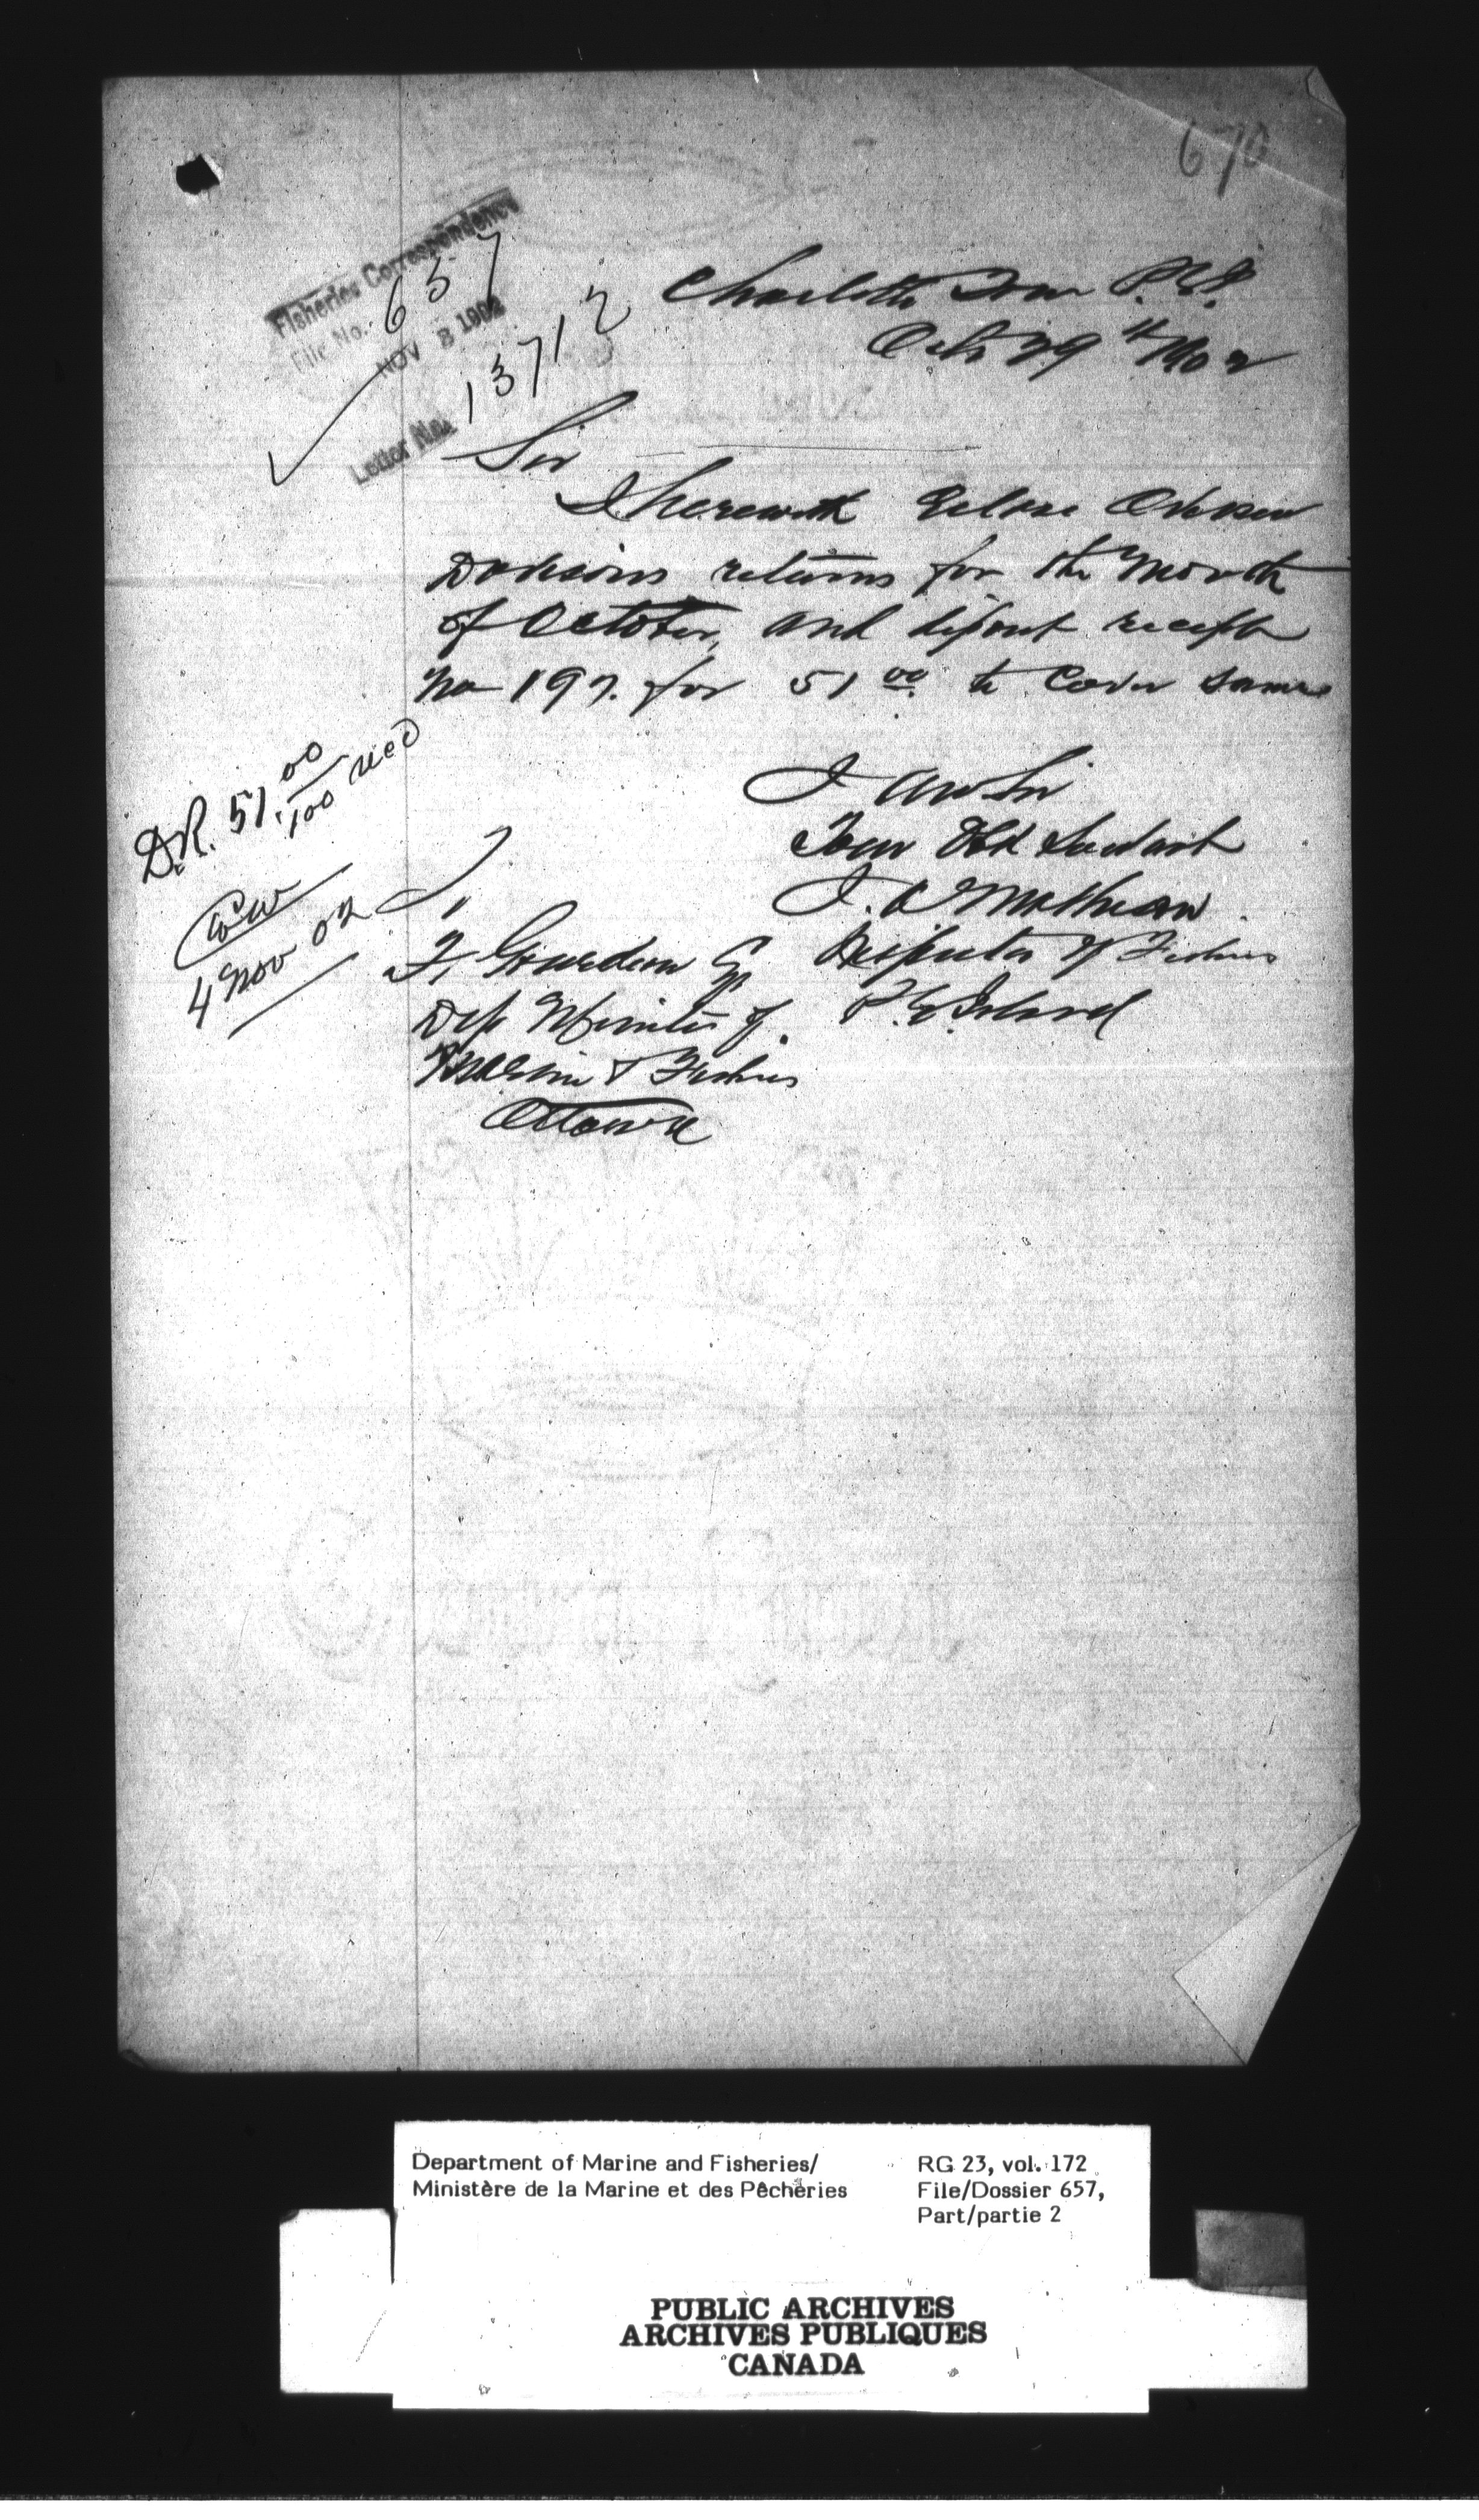 670
Fisheries Correspondence
File No. 657
NOV 3 1902
Letter No. 13712
Charlotte Town P.E.I.
Oct 29th 1902
Sir
I herewith Enclose
returns for the Month
of October, and deposit receipt
No 197. for 51 00 to Cover Same
D.R. 51.00/100 recd
4 Nov 02
I am Sir
Your Obt Servant
J. A Matheson
Inspector of Fisheries
P. E. Island
F. Gourdeau Esq
Dep Minister of
Marine & Fisheries
Ottawa
Department of Marine and Fisheries/
Ministère de la Marine et des Pêcheries
RG 23, vol. 172
File/Dossier 657,
Part/partie 2
PUBLIC ARCHIVES
ARCHIVES PUBLIQUES
CANADA